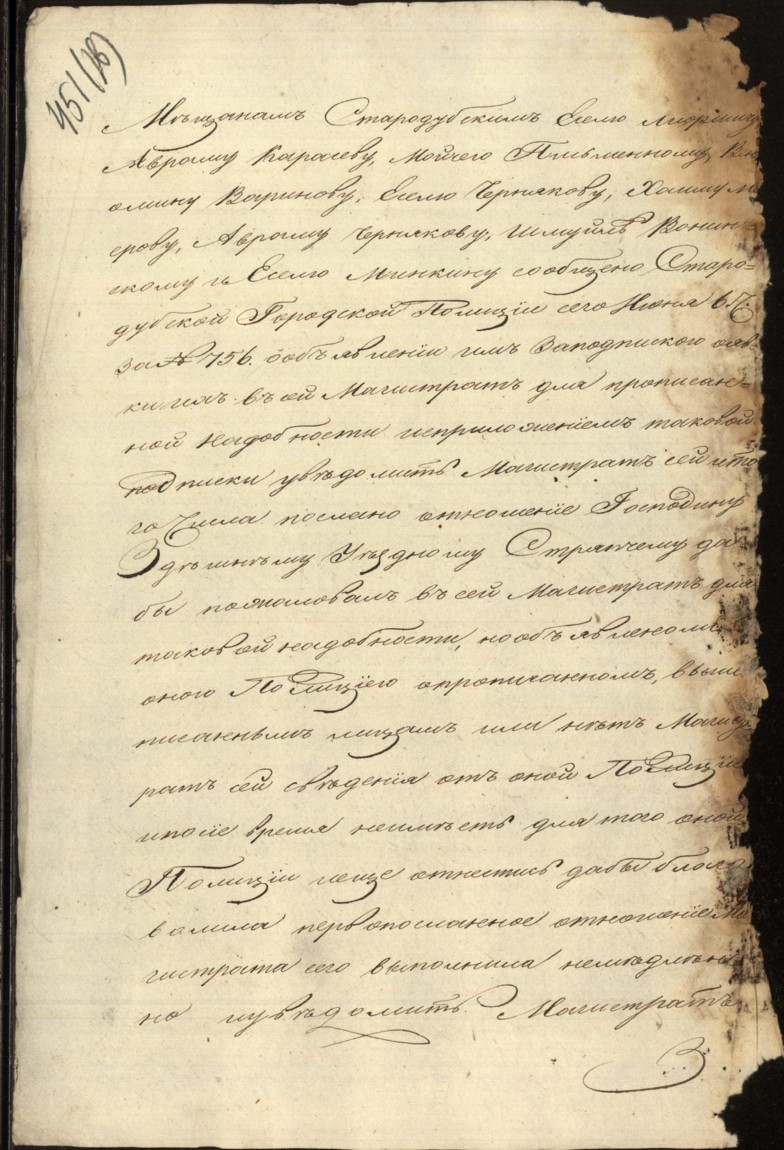 451 (28)
Мѣщанамъ Стародубскимъ Еселю
Авраму Карасеву, Мойчего Письменному, Вен
ѳмину Варинову, Еселю Чернякову, Хаиму
ерову, Авраму Чернякову, Шмуйлѣ Вонин-
скому и Еселю Минкину сообщено Старо=
дубской Городской Полиціи сего Іюня 6
за № 756. ѻобъявленіи имъ заподпискою ѻяв-
ки ихъ въ сей Магистратъ для прописан=
ной надобности исприложеніемъ таковой
подписки увѣдомить Магистратъ сей ито
го Числа послано отношеніе Господину
Здѣшнѣму Уѣздному Стряпчему да
бы пожаловалъ въ сей Магистратъ для
таковой надобности, но объявлено ли
оною Полиціею ѻпрописанномъ, выше
писаннымъ лицамъ или нѣтъ Магист
ратъ сей свѣденія отъ оной Полиціи
ипосіе время неимѣетъ для того оной
Полиціи еще отнестись дабы благо
волила первопосланное отношеніе Ма
гистрата сего выполнила немѣдлѣн
но иувѣдомить Магистратъ